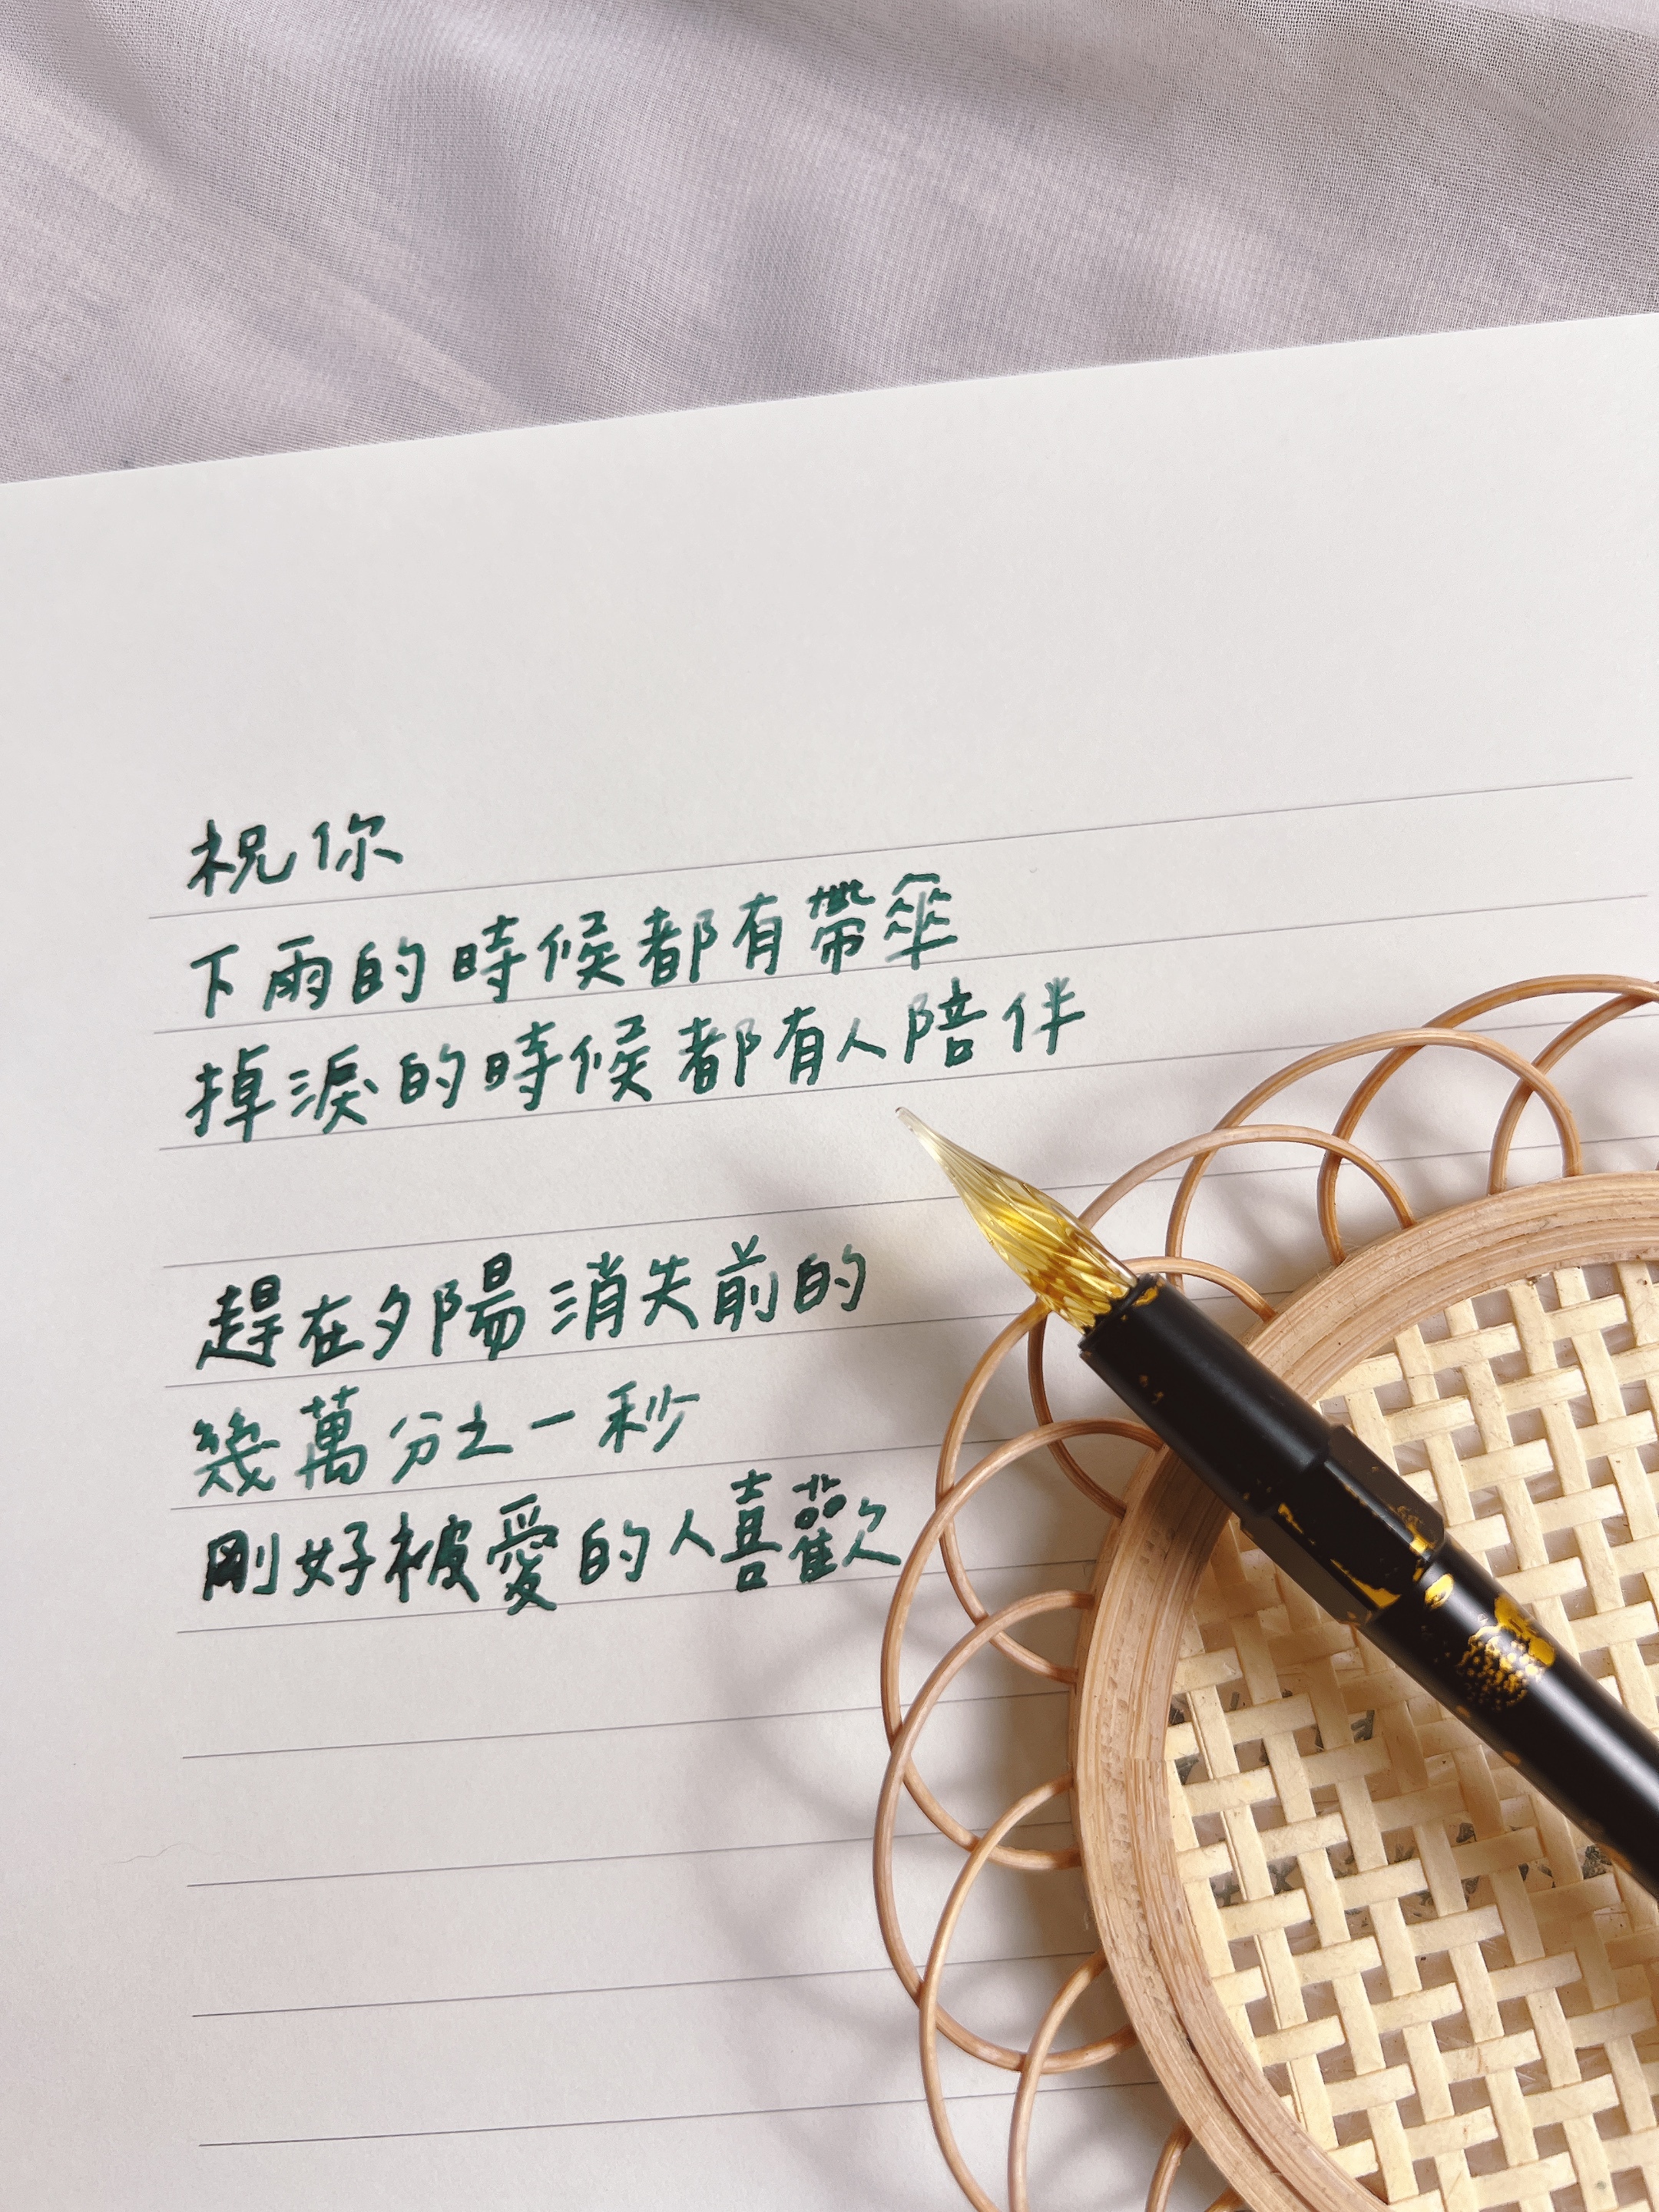 祝你
下雨的時候都有帶傘
掉淚的時候都有人陪伴
趕在夕陽消失前的
幾萬分之一秒
剛好被愛的人喜歡